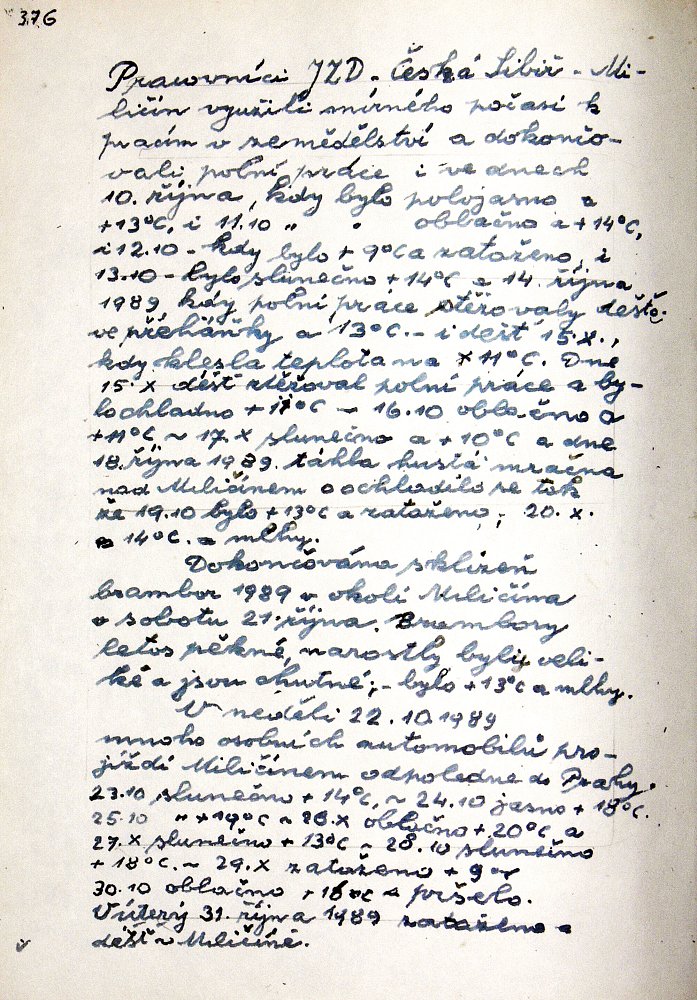 376
Pracovníci JZD - Česká Sibiř - Mi-
ličín využili mírného počasí k
pracím v zemědělství a dokončo-
vali polní práce i ve dnech
10. října, kdy bylo polojasno a
+13°C, i 11.10 " " oblačno a +14°C,
i 12.10 - kdy bylo + 9°C a zataženo, i
13.10 - bylo slunečno +14°C a 14. října
1989 kdy polní práce ztěžovaly deště
ve přeháňky a 13°C. - i déšť 15.X.,
kdy klesla teplota na +11°C. Dne
15.X déšť ztěžoval polní práce a by-
lo chladno +11°C ~ 16.10 oblačno a
+11°C ~ 17.X slunečno a +10°C a dne
18. října 1989 táhla hustá mračna
nad Miličínem a ochladilo se tak
že 19.10 bylo +13°C a zataženo; 20.X.
a 14°C. a mlhy.
Dokončována sklizeň
brambor 1989 v okolí Miličína
v sobotu 21. října. Brambory
letos pěkné, narostly byly veli-
ké a jsou chutné; - bylo +13°C a mlhy.
V neděli 22.10.1989
mnoho osobních automobilů pro-
jíždí Miličínem odpoledne do Prahy.
23.10 slunečno +14°C, ~ 24.10 jasno +18°C.
25.10 " +19°C ~ 26.X oblačno +20°C a
27.X slunečno +13°C ~ 28.10 slunečno
+18°C. ~ 29.X zataženo + 9
30.10 oblačno +16°C a pršelo.
V úterý 31. října 1989 zataženo a
déšť v Miličíně.